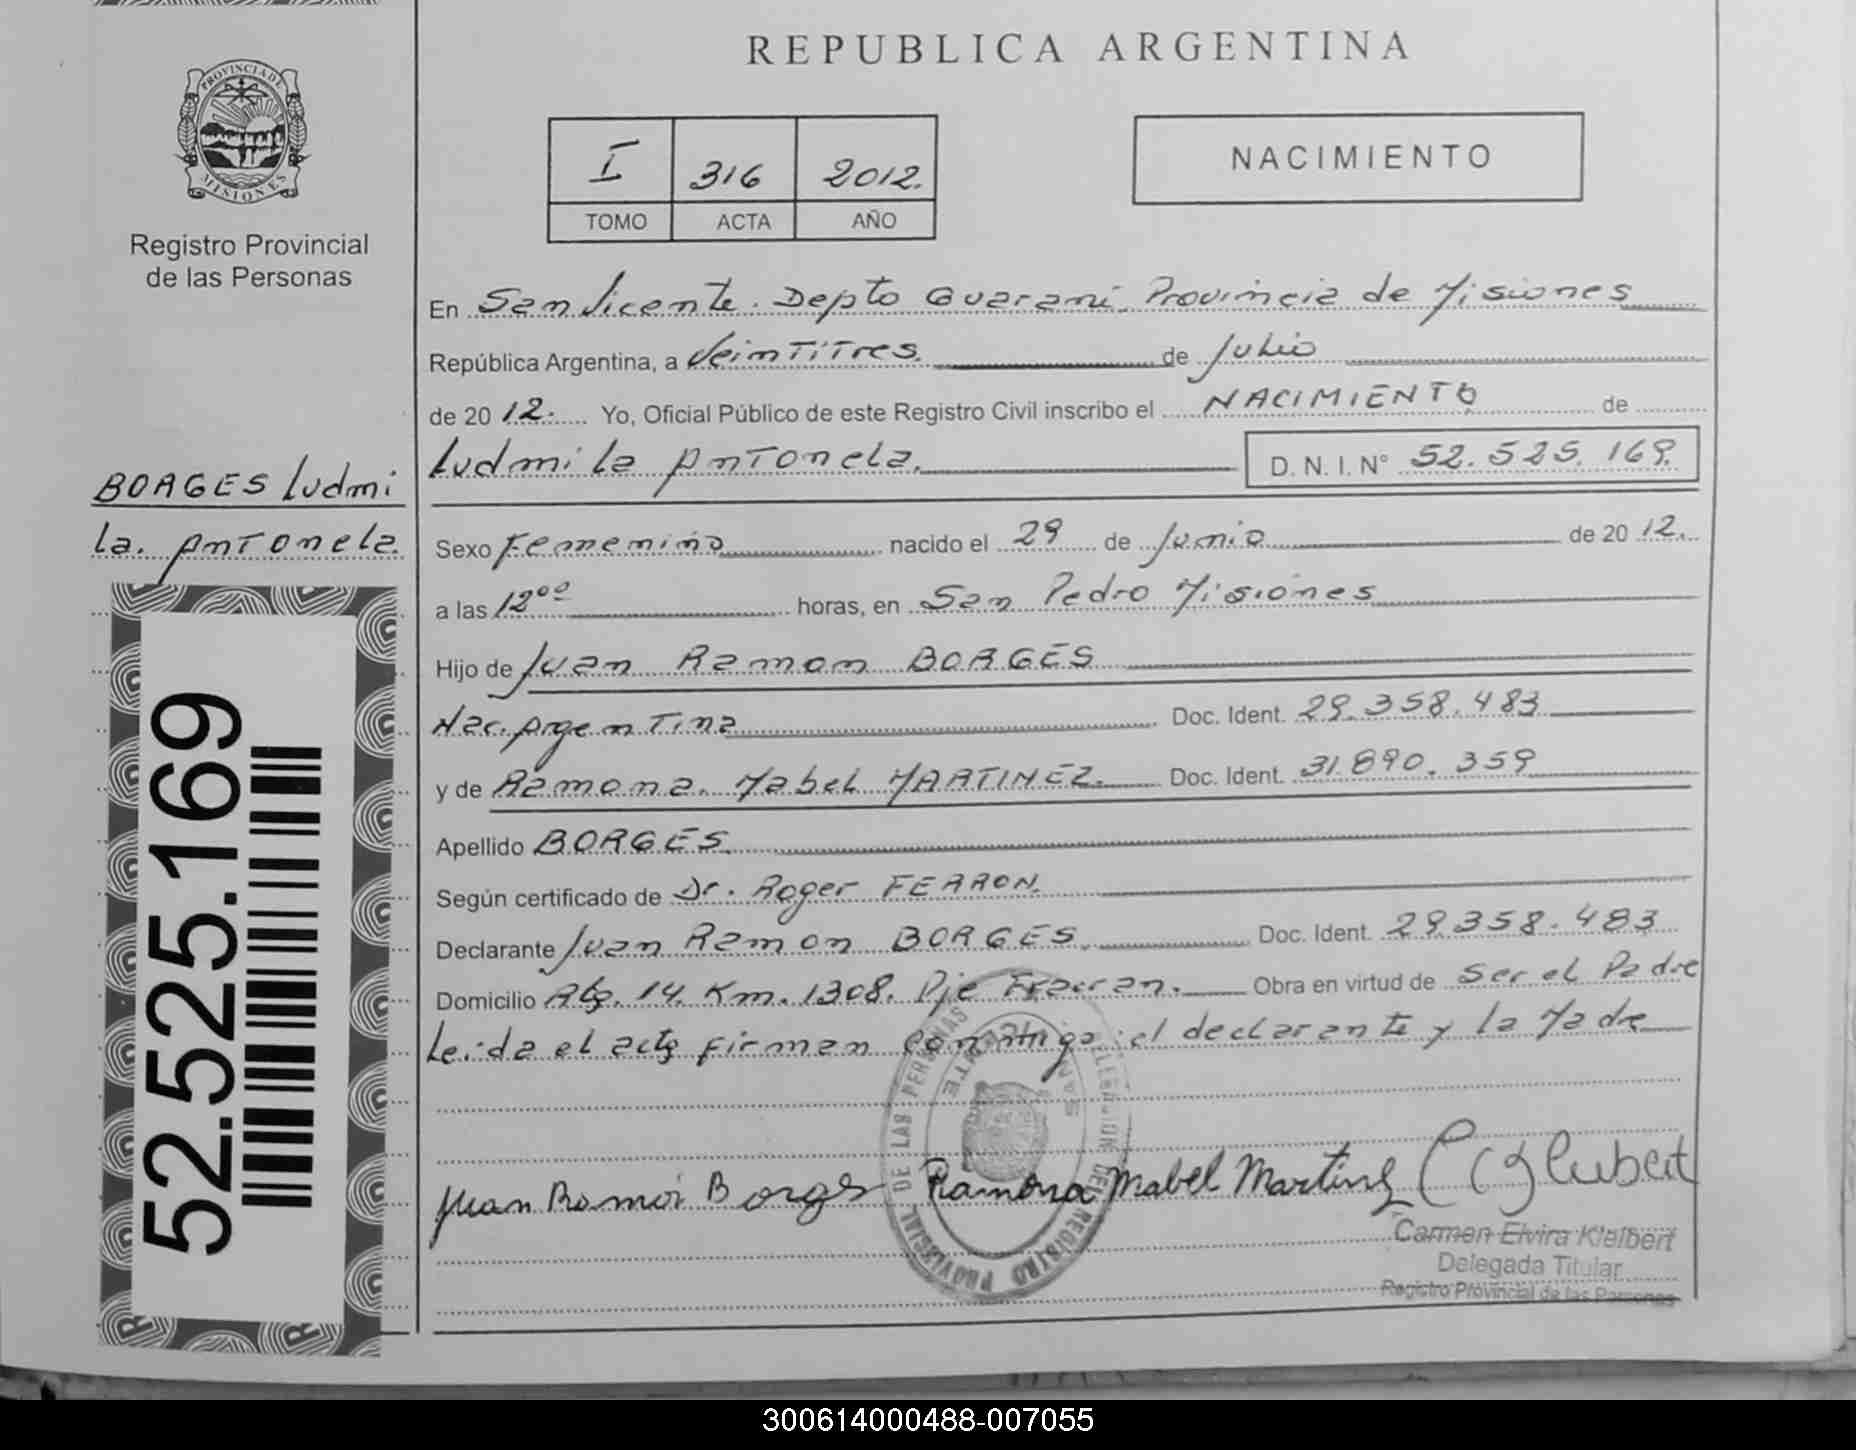 REPUBLICA ARGENTINA
PROVINCIA DE
MISIONES
Registro Provincial
de las Personas
I 316 2012.
TOMO ACTA AÑO
NACIMIENTO
En San Vicente. Depto Guarani Provincia de Misiones
República Argentina, a Veintitres. de Julio
de 20 12. Yo, Oficial Público de este Registro Civil inscribo el NACIMIENTO de
Ludmila Antonela. D. N. I. N° 52.525.169.
BORGES Ludmi
la. Antonela.
52.525.169
Sexo Femenino nacido el 29 de Junio de 20 12.
a las 12⁰⁰ horas, en San Pedro Misiones
Hijo de Juan Ramon BORGES
Nac. Argentina Doc. Ident. 29.358.483
y de Ramona. Mabel MARTINEZ. Doc. Ident. 31.890.359
Apellido BORGES.
Según certificado de Dr. Roger FERRON.
Declarante Juan Ramon BORGES. Doc. Ident. 29.358.483
Domicilio 14. Km. 1308. Pje Fracran. Obra en virtud de Ser el Padre
Leida el acta firman conmigo el declarante y la Madre
DELEGACION DEL REGISTRO PROVINCIAL DE LAS PERSONAS
SAN VICENTE
Juan Ramon Borges Ramona Mabel Martinez
Carmen Elvira Kleibert
Delegada Titular
Registro Provincial de las Personas
300614000488-007055